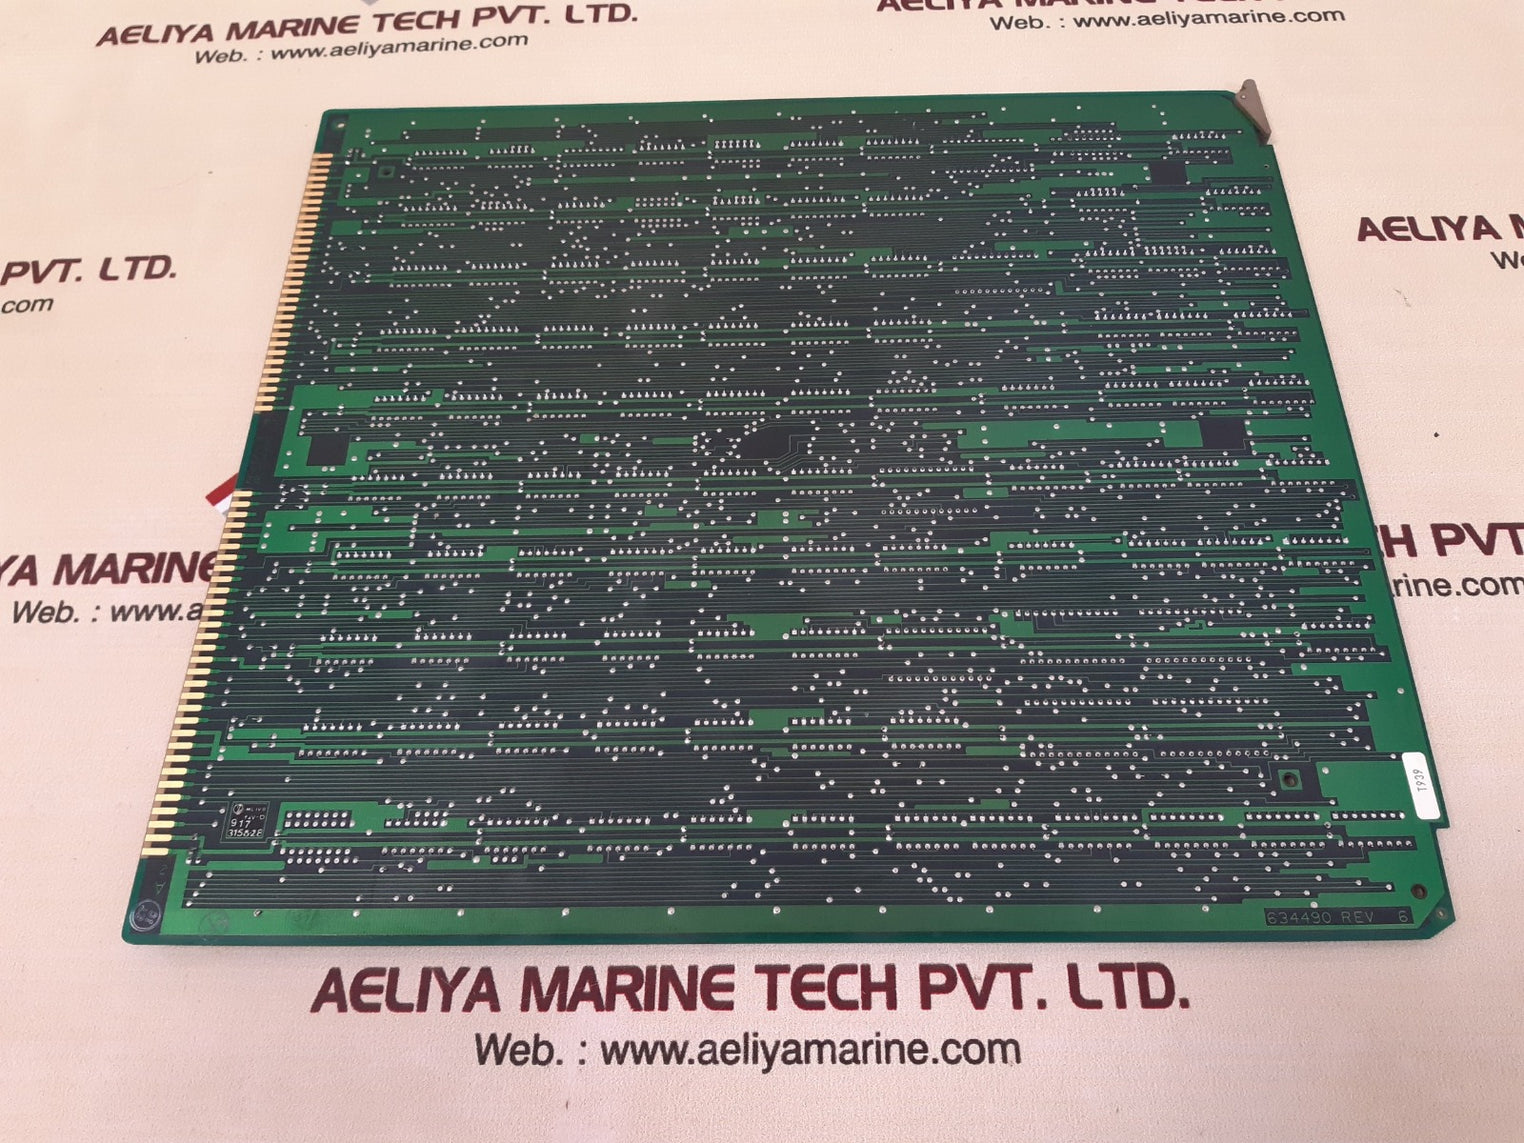 AELIYA MARINE TECH PVT. LTD.
Web. : www.aeliyamarine.com
AELIYA MARINE TECH
Web. : www.aeliyamarine.com
PVT. LTD.
com
AELIYA
YA MARINE
Web. : www.a
H PVT
rine.com
T939
917
634490 REV 6
AELIYA MARINE TECH PVT. LTD.
Web. : www.aeliyamarine.com